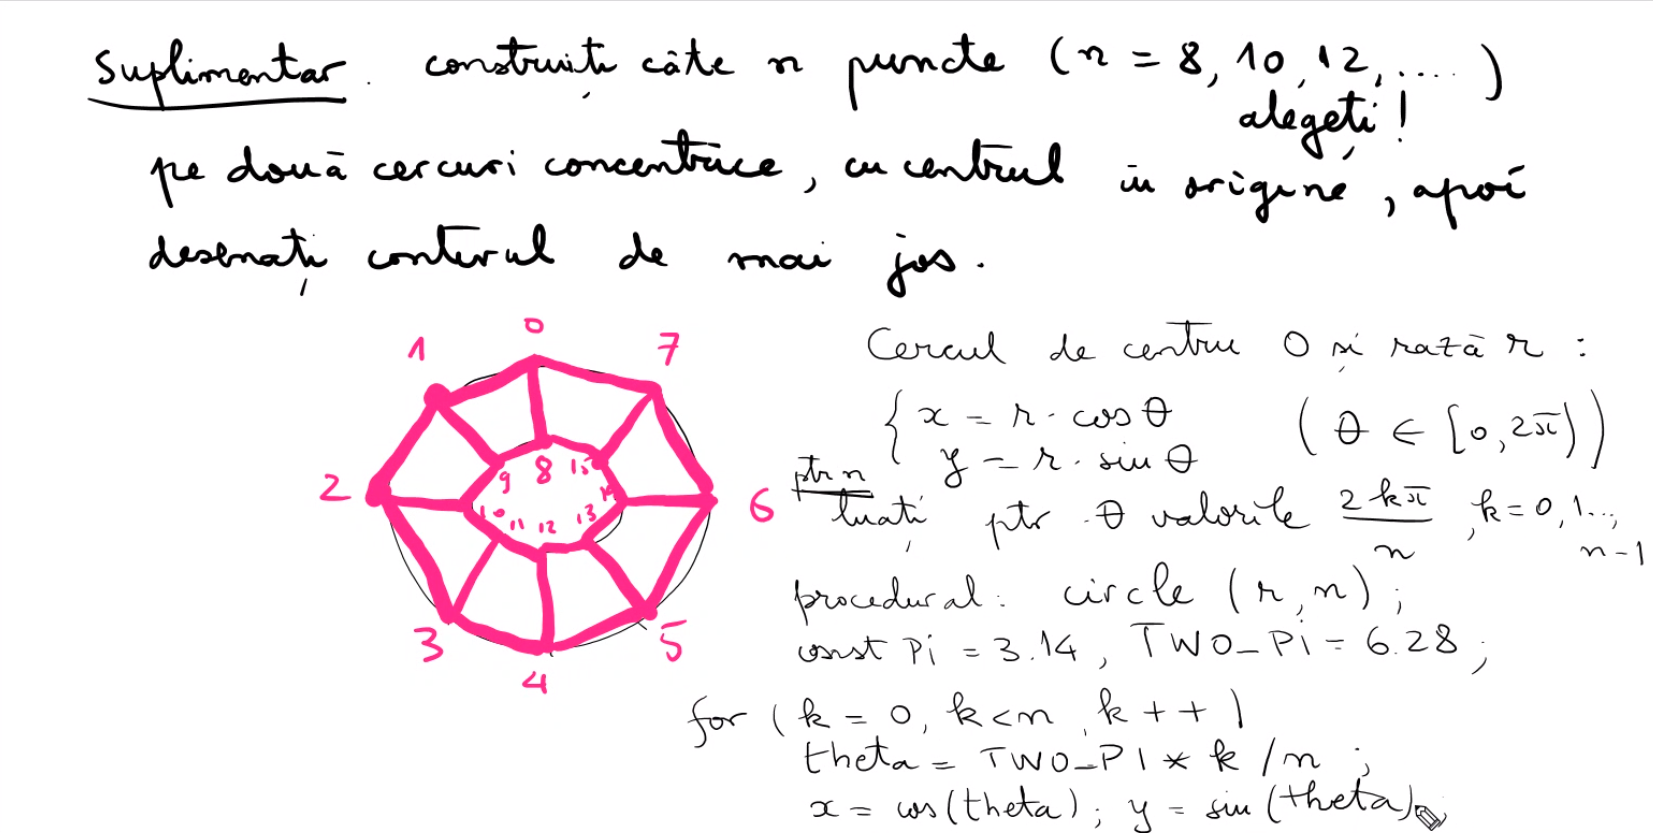 Suplimentar. construiți câte n puncte (n = 8, 10, 12, ....)
alegeți!
pe două cercuri concentrice, cu centrul în origine, apoi
desenați conturul de mai jos.
0
1
7
2
6
3
5
4
8
9
10
11
12
13
14
15
Cercul de centru O și rază r :
{ x = r · cos θ
y = r · sin θ
(θ ∈ [0, 2π))
ptr n
luați ptr θ valorile 2kπ/n, k = 0, 1..., n-1
procedural: circle (r, n);
const Pi = 3.14, TWO_Pi = 6.28;
for (k = 0, k<n, k++)
theta = TWO_PI * k / n ;
x = cos(theta); y = sin(theta);